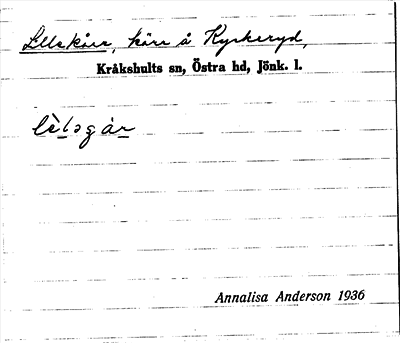 Lillekärr, kärr å Kyrkeryd,
Kråkshults sn, Östra hd, Jönk. l.
Annalisa Anderson 1936